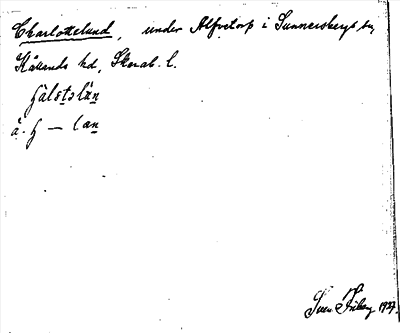 Charlottelund, under Alfvetorp i Sunnersbergs sn,
Kållands hd, Skarab. l.
å. g — lan
Sven Friberg 1927.